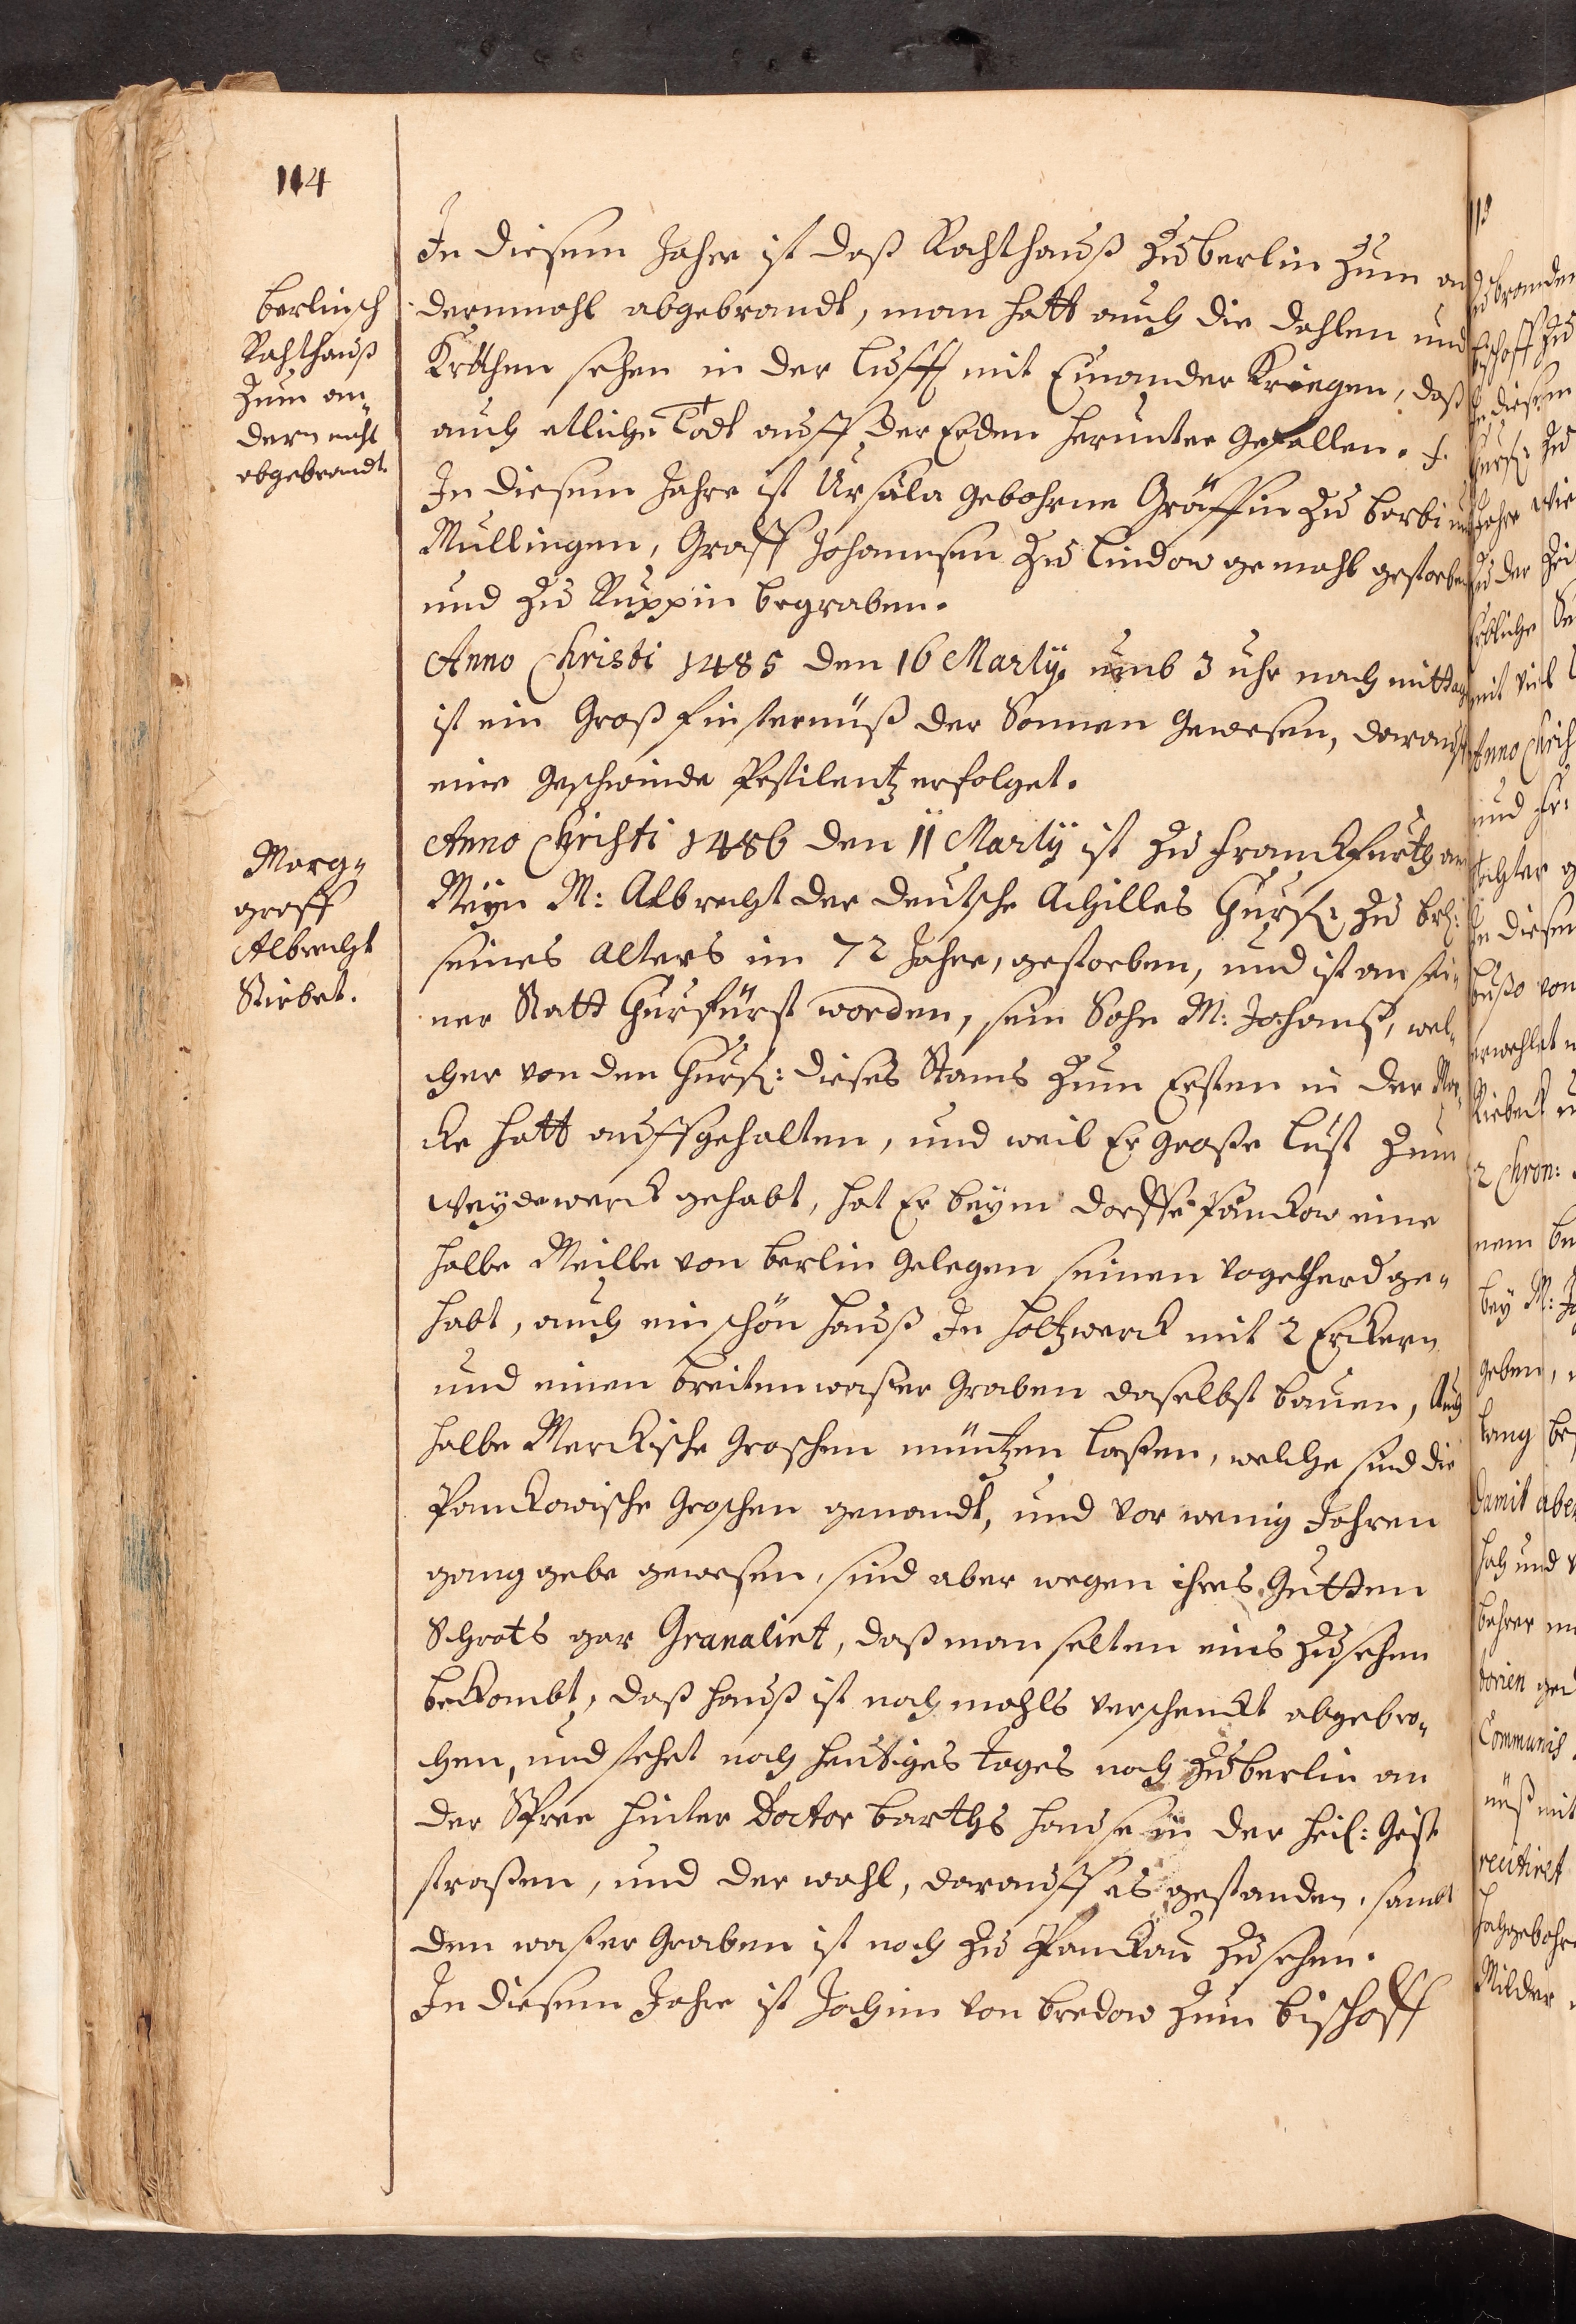 114
Berlinsch
Rahthauß
Zum an-
dern mahl
abgebrandt.
In diesem Jahre ist daß Rahthauß Zu Berlin Zum an
dernmahl abgebrandt, man hatt auch die dahlen und
Kröthen sehen in der Lufft mit Einander Kriegen, daß
auch etliche Todt auff der Erden herunter gefallen. f.
In diesem Jahre ist Ursäla gebohrne Gräffin Zu Barbi und
Mullingen, Graff Johansen Zu Lindow gemahl gestorben
und Zu Ruppin begraben.
Anno Christi 1485 den 16 Martÿ. umb 3 uhr nach mittag
ist ein Groß finsternüß der Sonnen gewesen, darauff
eine geschwinde Pestilentz erfolget.
Marg-
graff
Albrecht
Stirbet.
Anno Christi 1486 den 11 Martÿ ist Zu Franckfurth am
Meÿn M: Albrecht der deutsche Achilles Churf: Zu Br:
seines Alters im 72 Jahre, gestorben, und ist an sei-
ner Statt Churfürst worden, sein Sohn M: Johanß, wel-
cher von den Churf: dieses Stams Zum Ersten in der Mar-
cke hatt auffgehalten, und weil Er große Lust Zum
Weÿdewerck gehabt, hat Er beÿm dorffe Panckow eine
halbe Meille von Berlin gelegen seinen Vogelherd ge-
habt, auch ein schön Hauß In Holtzwerck mit 2 Erckern
und einen breiten waßer Graben daselbst bauen, Auch
halbe Merckische Groschen müntzen laßen, welche sind die
Panckowische Groschen genandt, und vor wenig Jahren
gang gebe gewesen, sind aber wegen ihres Gutten
Schrots gar Granaliet, daß man selten eins Zusehen
beckombt, daß Hauß ist nachmahls verschenckt abgebro-
chen, und stehet noch heutiges tages noch Zu Berlin an
der Spree hinter Doctor Barths Hause in der Heil: Geist
straßen, und der wahl, darauff es gestanden, sambt
den waßer Graben ist noch Zu Panckau Zusehen.
In diesem Jahre ist Jochim von Bredow Zum Bischoff